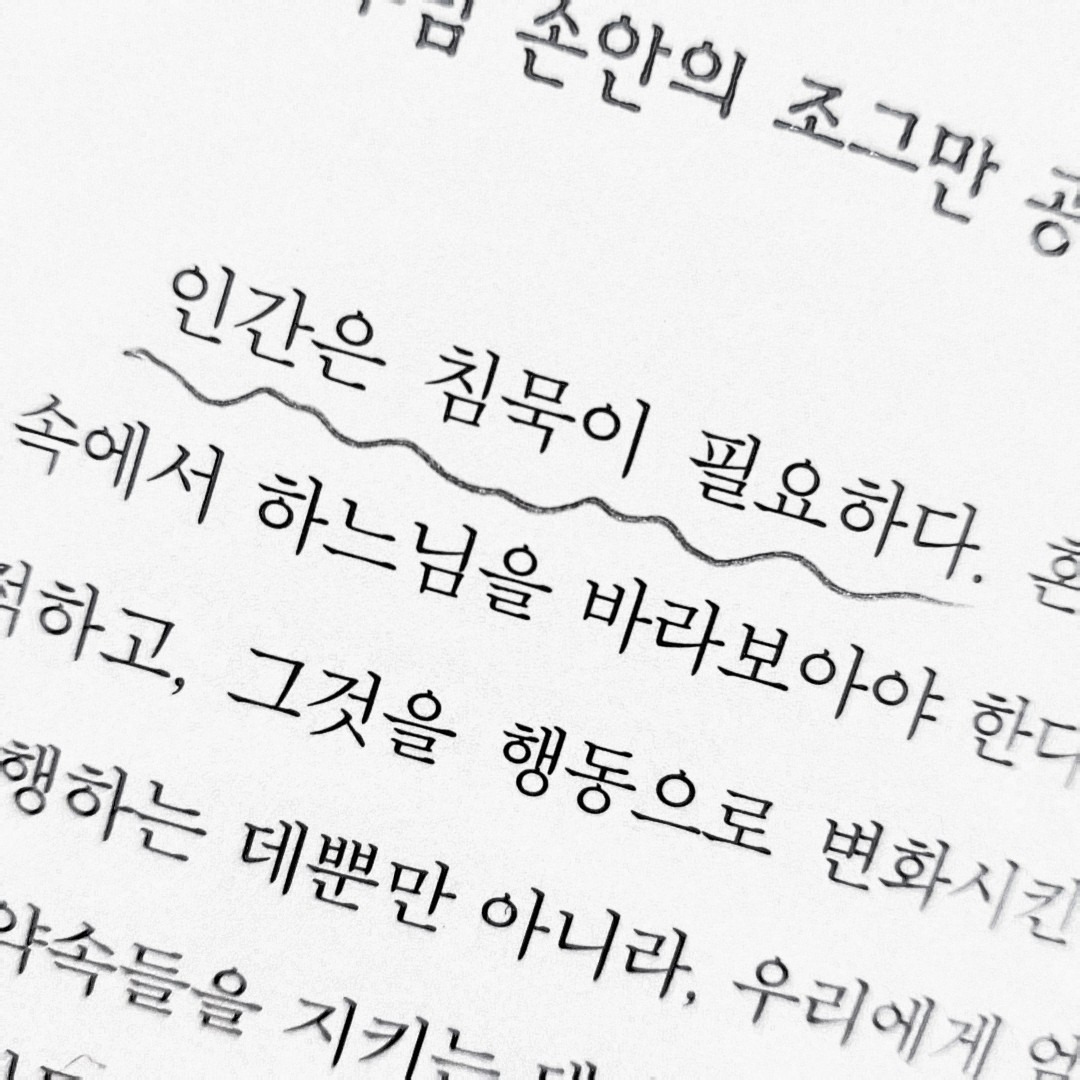 손안의 조그만
인간은 침묵이 필요하다.
속에서 하느님을 바라보아야 한다
그것을 행동으로 변화시킨
행하는 데뿐만 아니라, 우리에게
약속들을 지키는